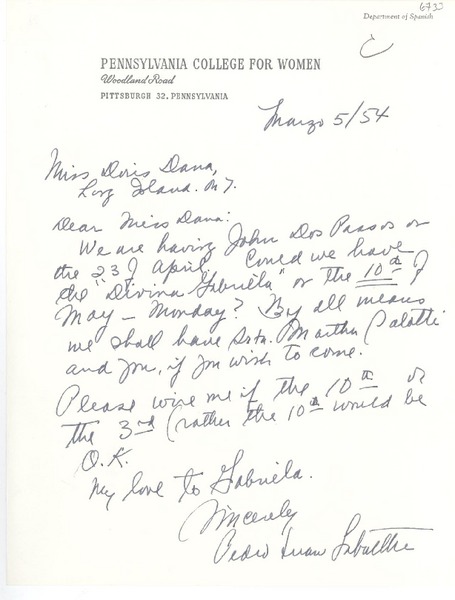 6733
Department of Spanish
C
PENNSYLVANIA COLLEGE FOR WOMEN
Woodland Road
PITTSBURGH 32, PENNSYLVANIA
Marzo 5/54
Miss Doris Dana,
Long Island. N.Y.
Dear Miss Dana:
We are having John Dos Passos on
the 23 of April. Could we have
the "Divina Gabriela" on the 10th of
May — Monday? By all means
we shall have Srta. Martha
and you, if you wish to come.
Please wire me if the 10th or
the 3rd (rather the 10th would be
O.K.
My love to Gabriela.
Sincerely
Pedro Juan Labarthe